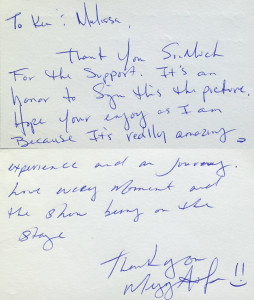 To Ken & Melissa,
Thank you So.Much
For the Support. It's an
honor to Sign this the picture.
Hope your enjoy as I am
Because It's really amazing
experience and an Journey.
Love every Moment and
the show being on the
stage
Thank you
!!